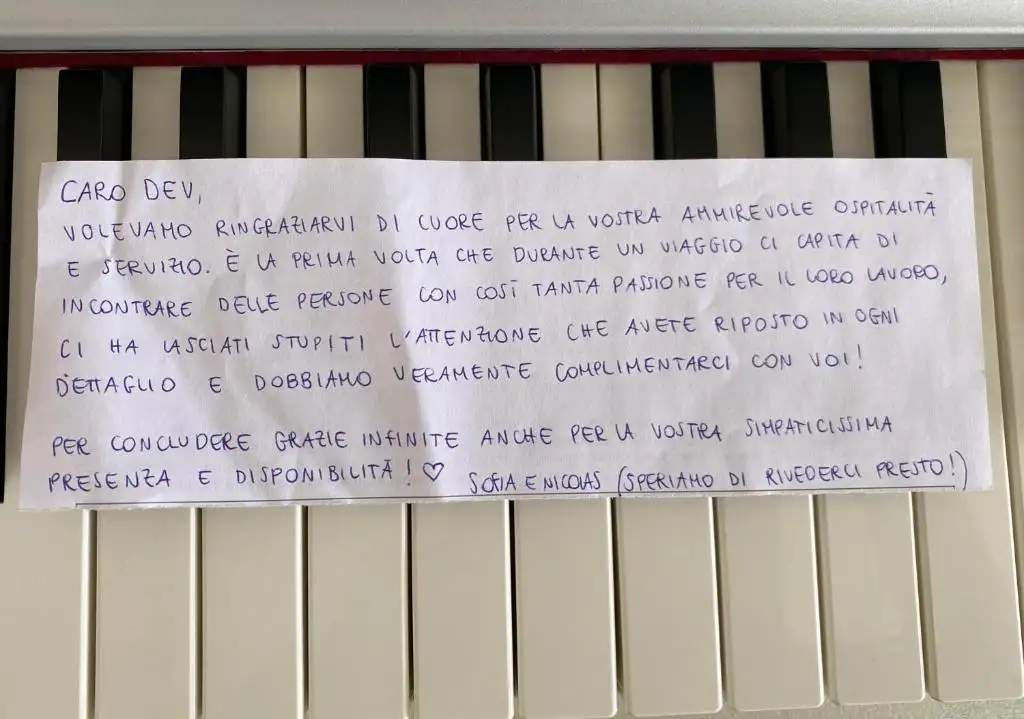 CARO DEV,
VOLEVAMO RINGRAZIARVI DI CUORE PER LA VOSTRA AMMIREVOLE OSPITALITÀ
E SERVIZIO. È LA PRIMA VOLTA CHE DURANTE UN VIAGGIO CI CAPITA DI
INCONTRARE DELLE PERSONE CON COSÌ TANTA PASSIONE PER IL LORO LAVORO,
CI HA LASCIATI STUPITI L'ATTENZIONE CHE AVETE RIPOSTO IN OGNI
DETTAGLIO E DOBBIAMO VERAMENTE COMPLIMENTARCI CON VOI!
PER CONCLUDERE GRAZIE INFINITE ANCHE PER LA VOSTRA SIMPATICISSIMA
PRESENZA E DISPONIBILITÀ! ♡ SOFIA E NICOLAS (SPERIAMO DI RIVEDERCI PRESTO!)